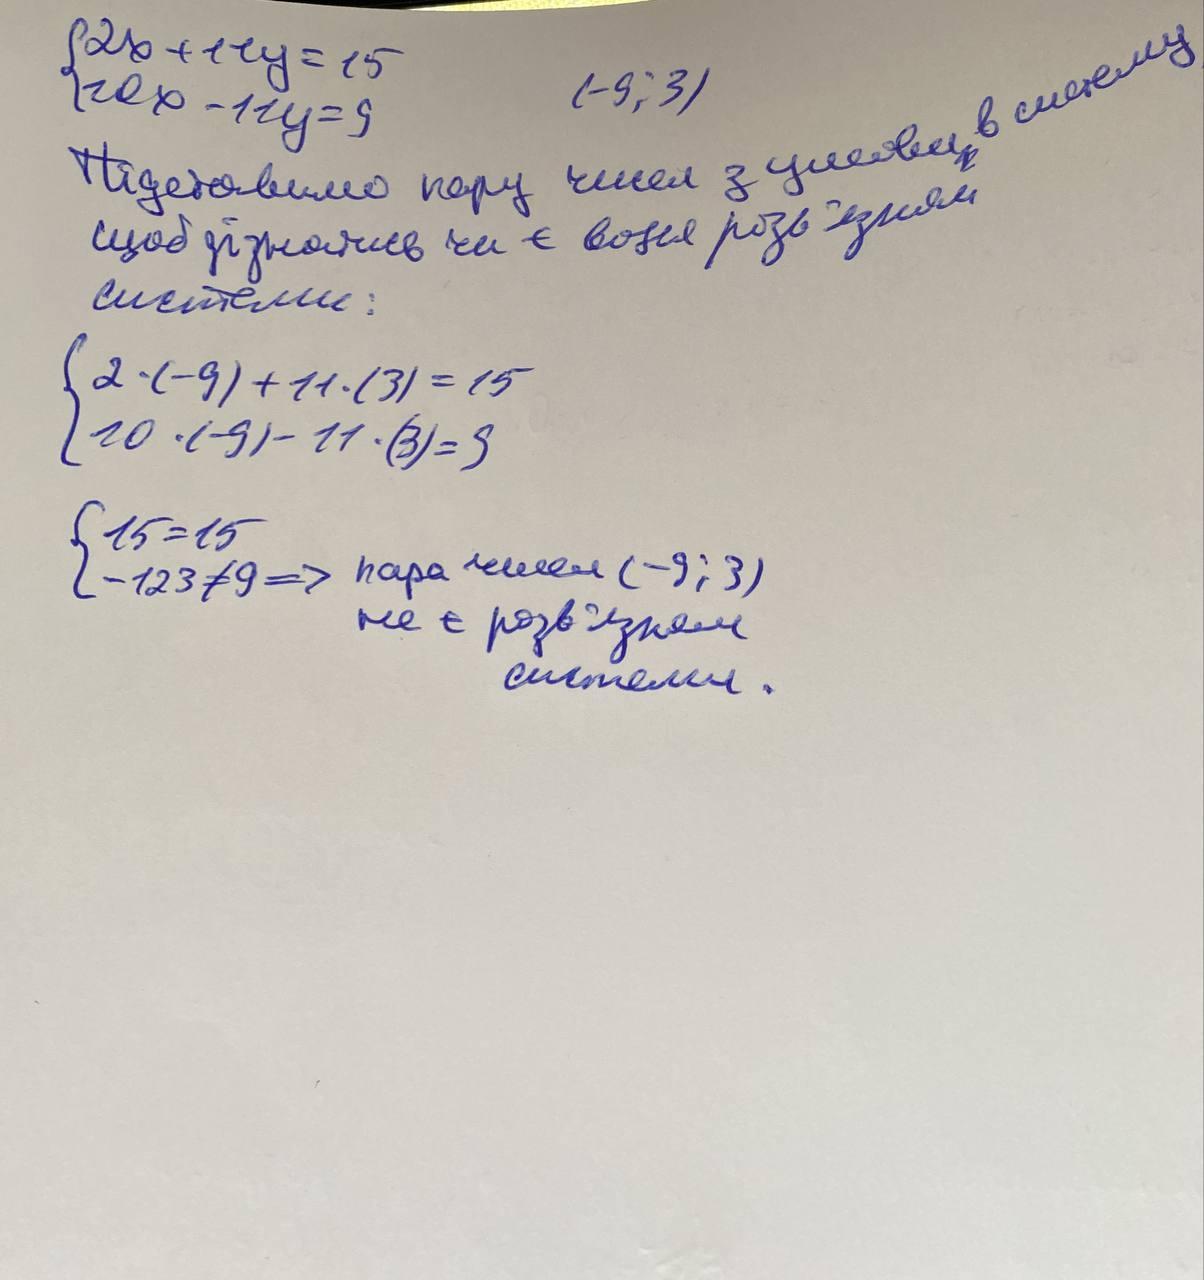 {2x + 11y = 15
{10x - 11y = 9
(-9; 3)
Підставимо пару чисел з умови, в систему,
щоб дізнатись чи є вона розв'язком
системи:
{2·(-9) + 11·(3) = 15
{10·(-9) - 11·(3) = 9
{15 = 15
{-123 ≠ 9 => пара чисел (-9; 3)
не є розв'язком
системи.